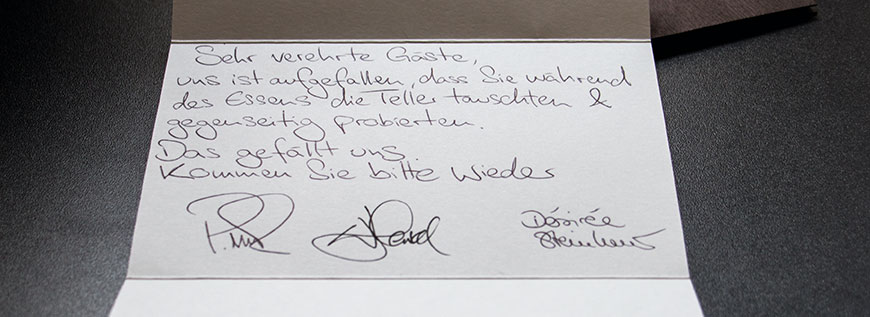 Sehr verehrte Gäste,
uns ist aufgefallen, dass Sie während
des Essens die Teller tauschten &
gegenseitig probierten.
Das gefällt uns.
Kommen Sie bitte wieder
Désirée